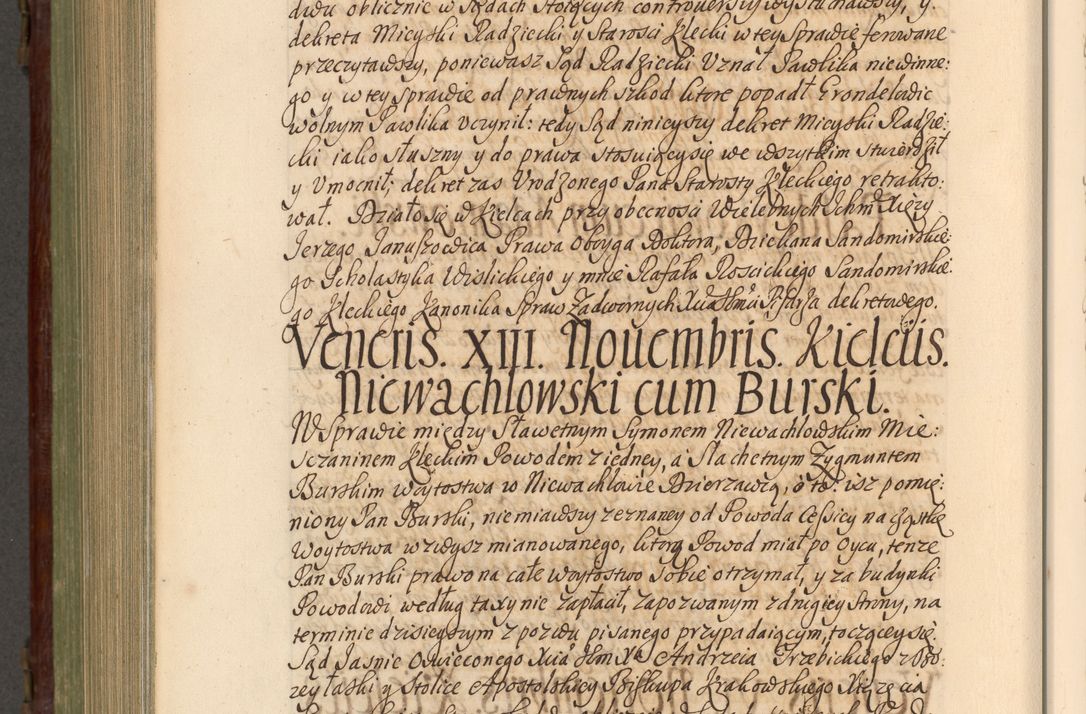 dwu oblicznie w Sądach stoiących controuersiy wysłuchawszy, y
dekreta Mieyski Radziecki y Starosci Kłecki w tey Sprawie ferowane
przeczytawszy, poniewasz Sąd Radziecki Uznał Pawlika niewinne:
go y w tey sprawie od prawnych szkod ktore popadł Grondekowic
wolnym Pawlika uczynił: tedy Sąd ninieyszy dekret Mieyski Radzie:
cki iako słuszny y do prawa stosuiący się we wszytkim stwierdził
y Umocnił; dekret zas Urodzonego Pana Starosty Kłeckiego retrakto:
wał. Działo się w Kielcach przy obecnosci Wielebnych Ichm Xięzy
Jerzego Januszowica Prawa Oboyga Doktora, Dziekana Sandomirskie:
go Scholastyka Wislickiego y mnie Rafała Roscickiego Sandomirskie:
go Kłeckiego Kanonika Spraw Zadwornych Xcia Jhmci Pisarza dekretowego.
Veneris. XIII. Nouembris. Kielciis.
Niewachlowski cum Burski.
W Sprawie między Sławetnym Symonem Niewachlowskim Mie:
sczaninem Kłeckim Powodem z iedney, a Slachetnym Zygmuntem
Burskim woytostwa w Niewachlowie Dzierzawcą, o to: isz pomię:
niony Pan Burski, niemiawszy zeznaney od Powoda Cessiey na cząstkę
Woytostwa wzwysz mianowanego, ktorą Powod miał po Oycu, tenze
Pan Burski prawo na całe woytostwo sobie otrzymał, y za budynki
Powodowi według taxy nie zapłacił, zapozwanym z drugiey strony, na
terminie dzisieyszym z pozwu pisanego przypadaiącym, toczącey się.
Sąd Jasnie Oswieconego Xcia Jhm Xa Andrzeia Trzebickiego z Bo:
zey łaski y Stolice Apostolskiey Biskupa Krakowskiego Xiązęcia